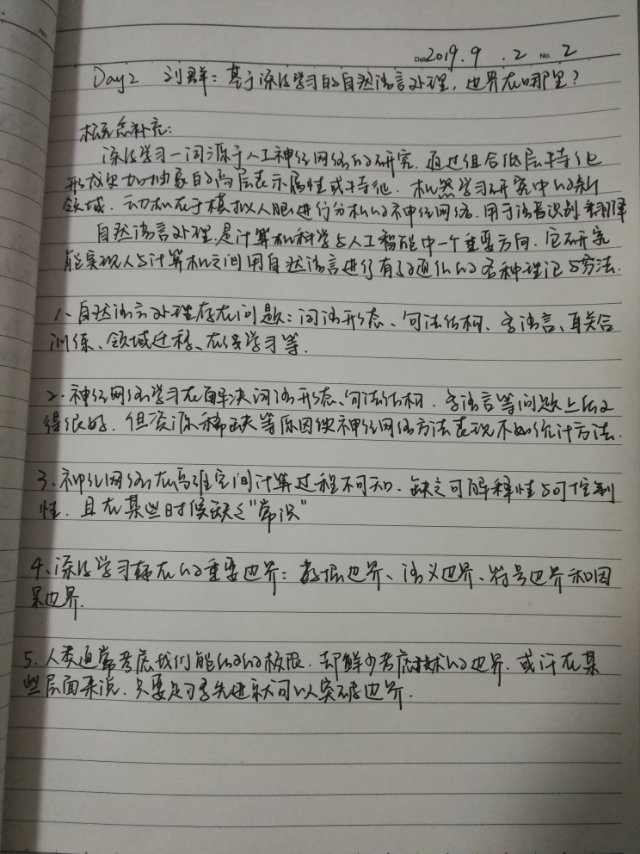 Date 2019. 9 . 2 No. 2
Day2 刘群：基于深度学习的自然语言处理，边界在哪里？
概念补充：
深度学习一词源于人工神经网络的研究．通过组合低层特征
形成更加抽象的高层表示属性或特征．机器学习研究中的新
领域．动机在于模拟人脑进行分析的神经网络．用于语音识别和翻译
自然语言处理是计算机科学与人工智能中一个重要方向．它研究
能实现人与计算机之间用自然语言进行有效通信的各种理论与方法．
1、自然语言处理存在问题：词语形态、句法结构、多语言、联合
训练、领域迁移、在线学习等．
2．神经网络学习在解决词语形态、句法结构．多语言等问题上做
得很好．但资源稀缺等原因使神经网络方法表现不如统计方法．
3、神经网络在高维空间计算过程不可知．缺乏可解释性与可控制
性．且在某些时候缺乏“常识”
4、深度学习存在的重要边界：数据边界、语义边界、符号边界和因
果边界．
5．人类通常考虑我们能做的极限．却鲜少考虑技术的边界．或许在某
些层面来说．只要足够先进就可以突破边界．